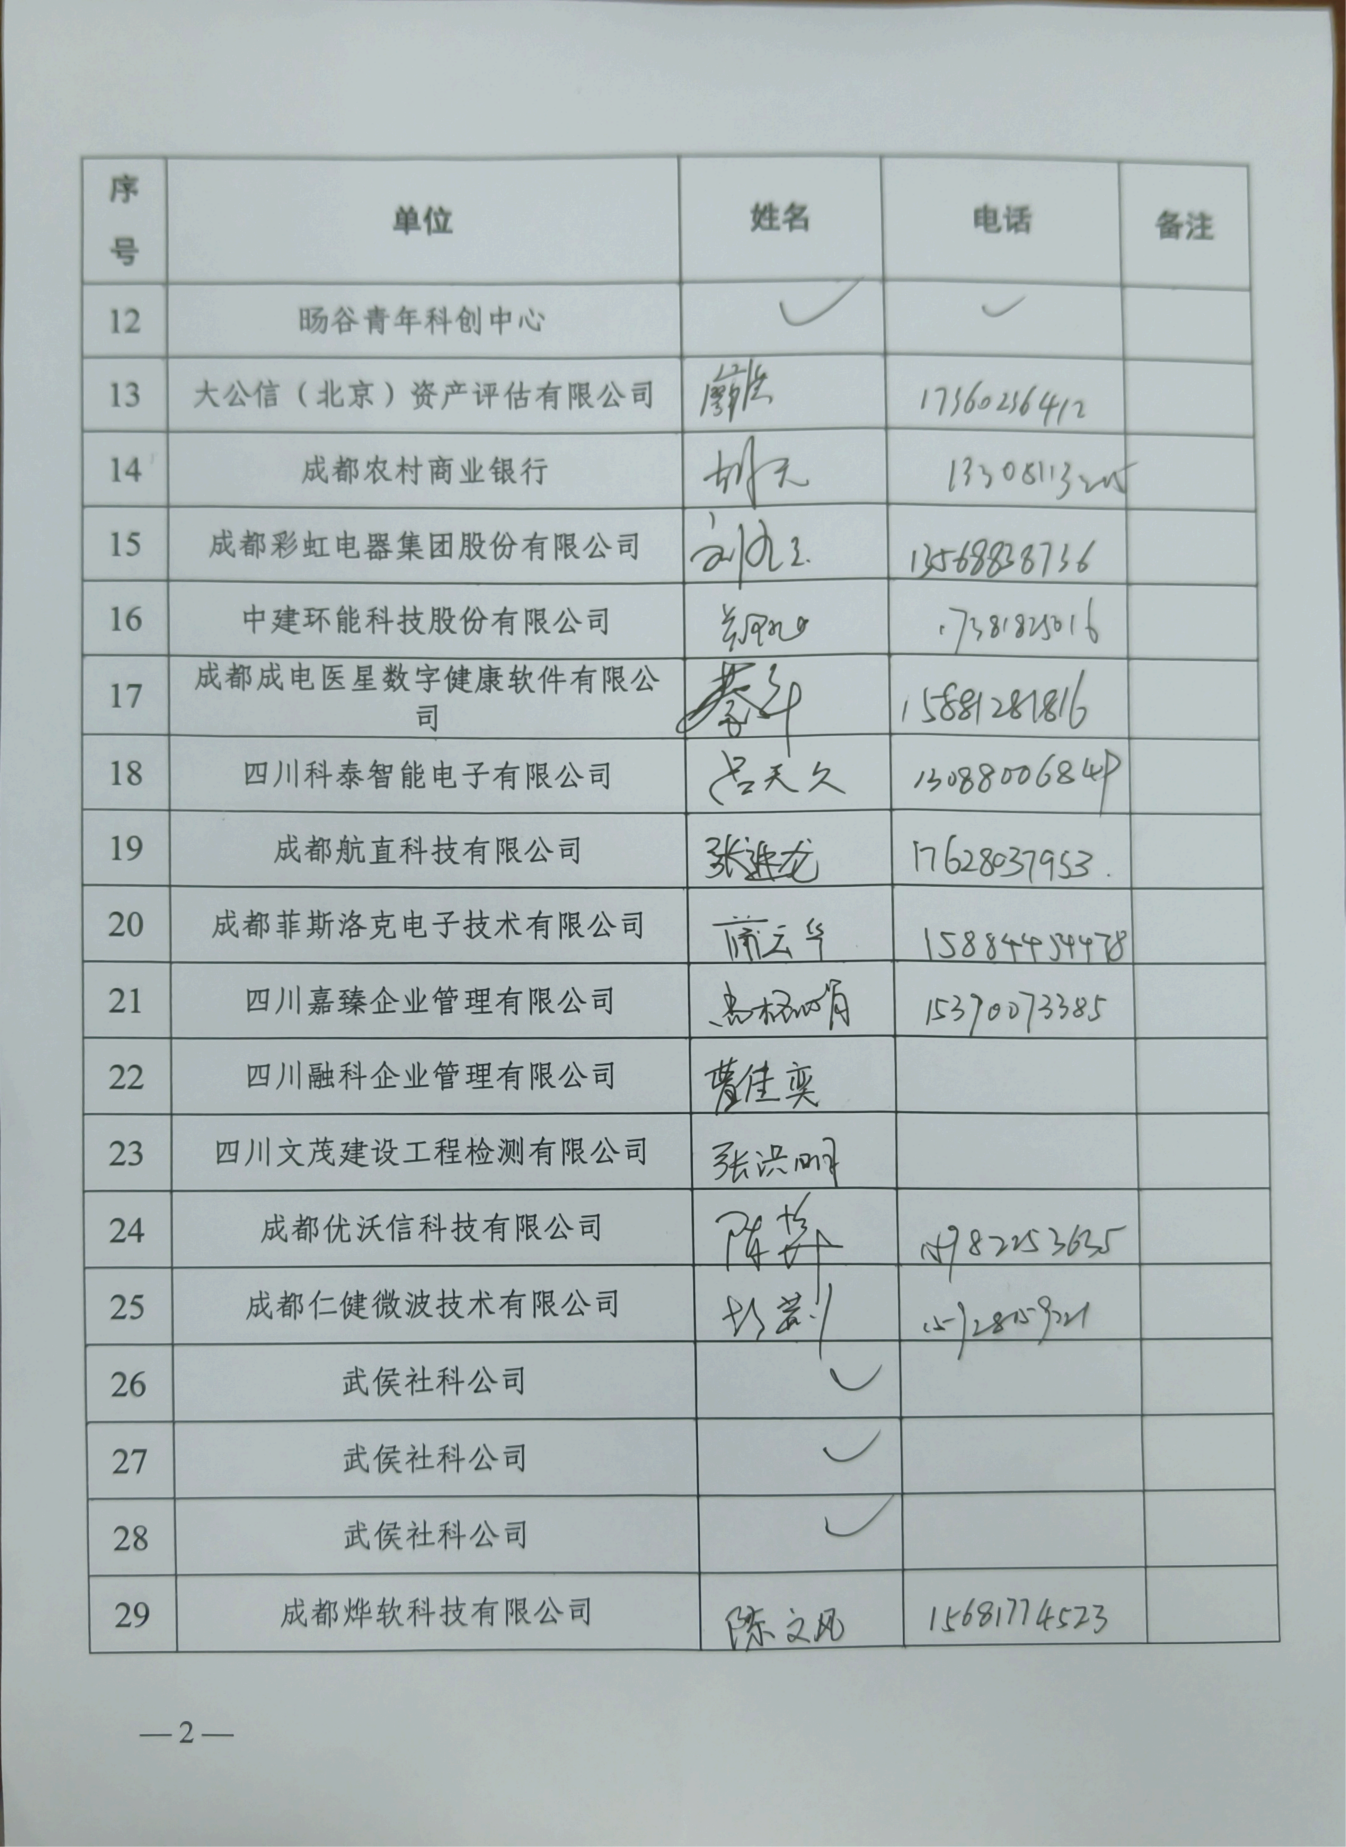 序号 单位 姓名 电话 备注
12 旸谷青年科创中心 ✓ ✓
13 大公信（北京）资产评估有限公司 17360236412
14 成都农村商业银行 胡元
15 成都彩虹电器集团股份有限公司 13568838736
16 中建环能科技股份有限公司 17381825016
17 成都成电医星数字健康软件有限公司 15881281816
18 四川科泰智能电子有限公司 吕天久
19 成都航直科技有限公司 张进龙 17628037953
20 成都菲斯洛克电子技术有限公司 蒲云华 15884454478
21 四川嘉臻企业管理有限公司 15390073385
22 四川融科企业管理有限公司 曹佳奕
23 四川文茂建设工程检测有限公司 张洪明
24 成都优沃信科技有限公司 15982253635
25 成都仁健微波技术有限公司
26 武侯社科公司 ✓
27 武侯社科公司 ✓
28 武侯社科公司 ✓
29 成都烨软科技有限公司 陈文风 15681774523
—2—